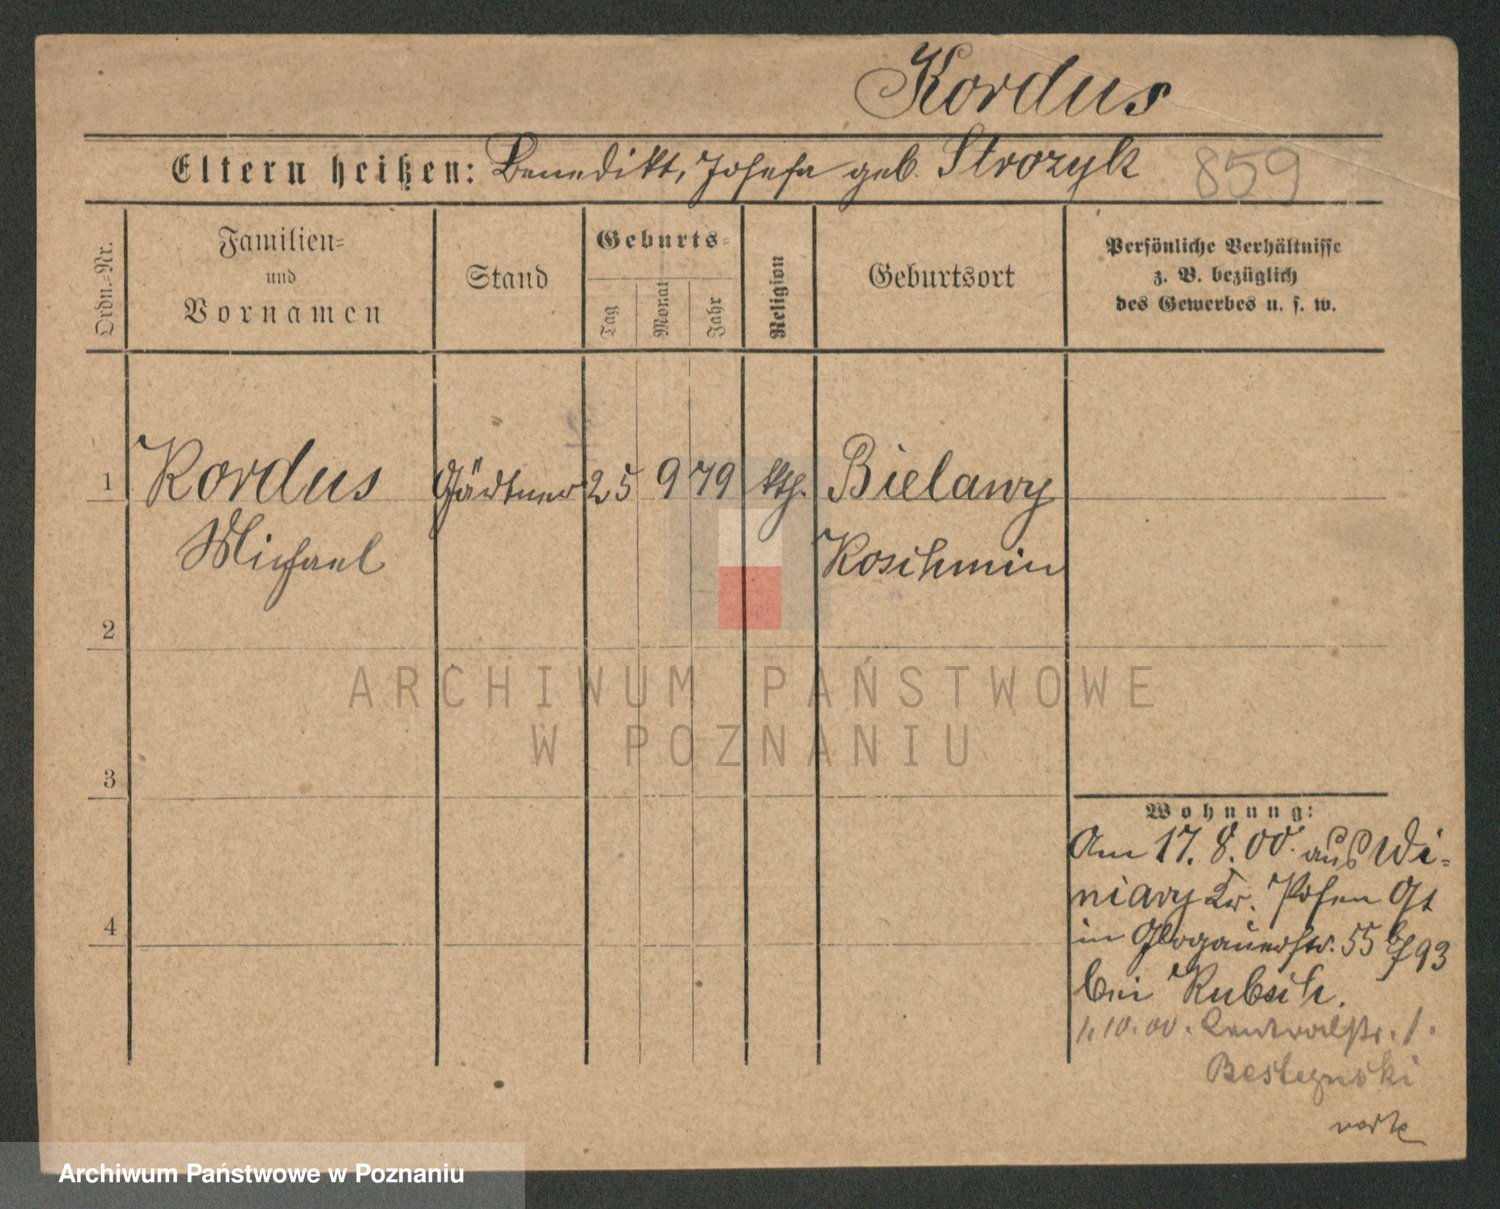 Kordus
Eltern heißen: Benedikt, Josefa geb. Strozyk 859
Ordn.-Nr.
Familien-
und
Vornamen
Stand
Geburts-
Tag
Monat
Jahr
Religion
Geburtsort
Persönliche Verhältnisse
z. B. bezüglich
des Gewerbes u. s. w.
1 Kordus Gärtner 25 9 79 kth. Bielawy
Michael Koschmin
2
3
4
Wohnung:
Am 17. 8. 00. aus Wi-
niary Kr. Posen O
in Glogauerstr. 55 93
bei Rubsch.
1. 10. 00. Centralstr. 1.
ARCHIWUM PAŃSTWOWE
W POZNANIU
Archiwum Państwowe w Poznaniu